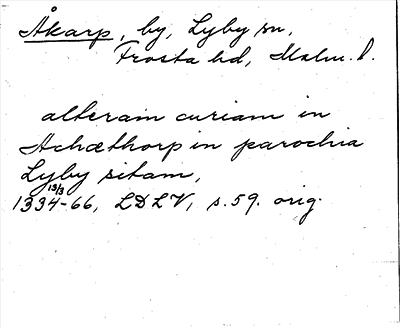 Åkarp, by, Lyby sn,
Frosta hd, Malm. l.
alteram curiam in
Achæthorp in parochia
Lyby sitam,
13/3
1334-66, LDLV, s. 59. orig.